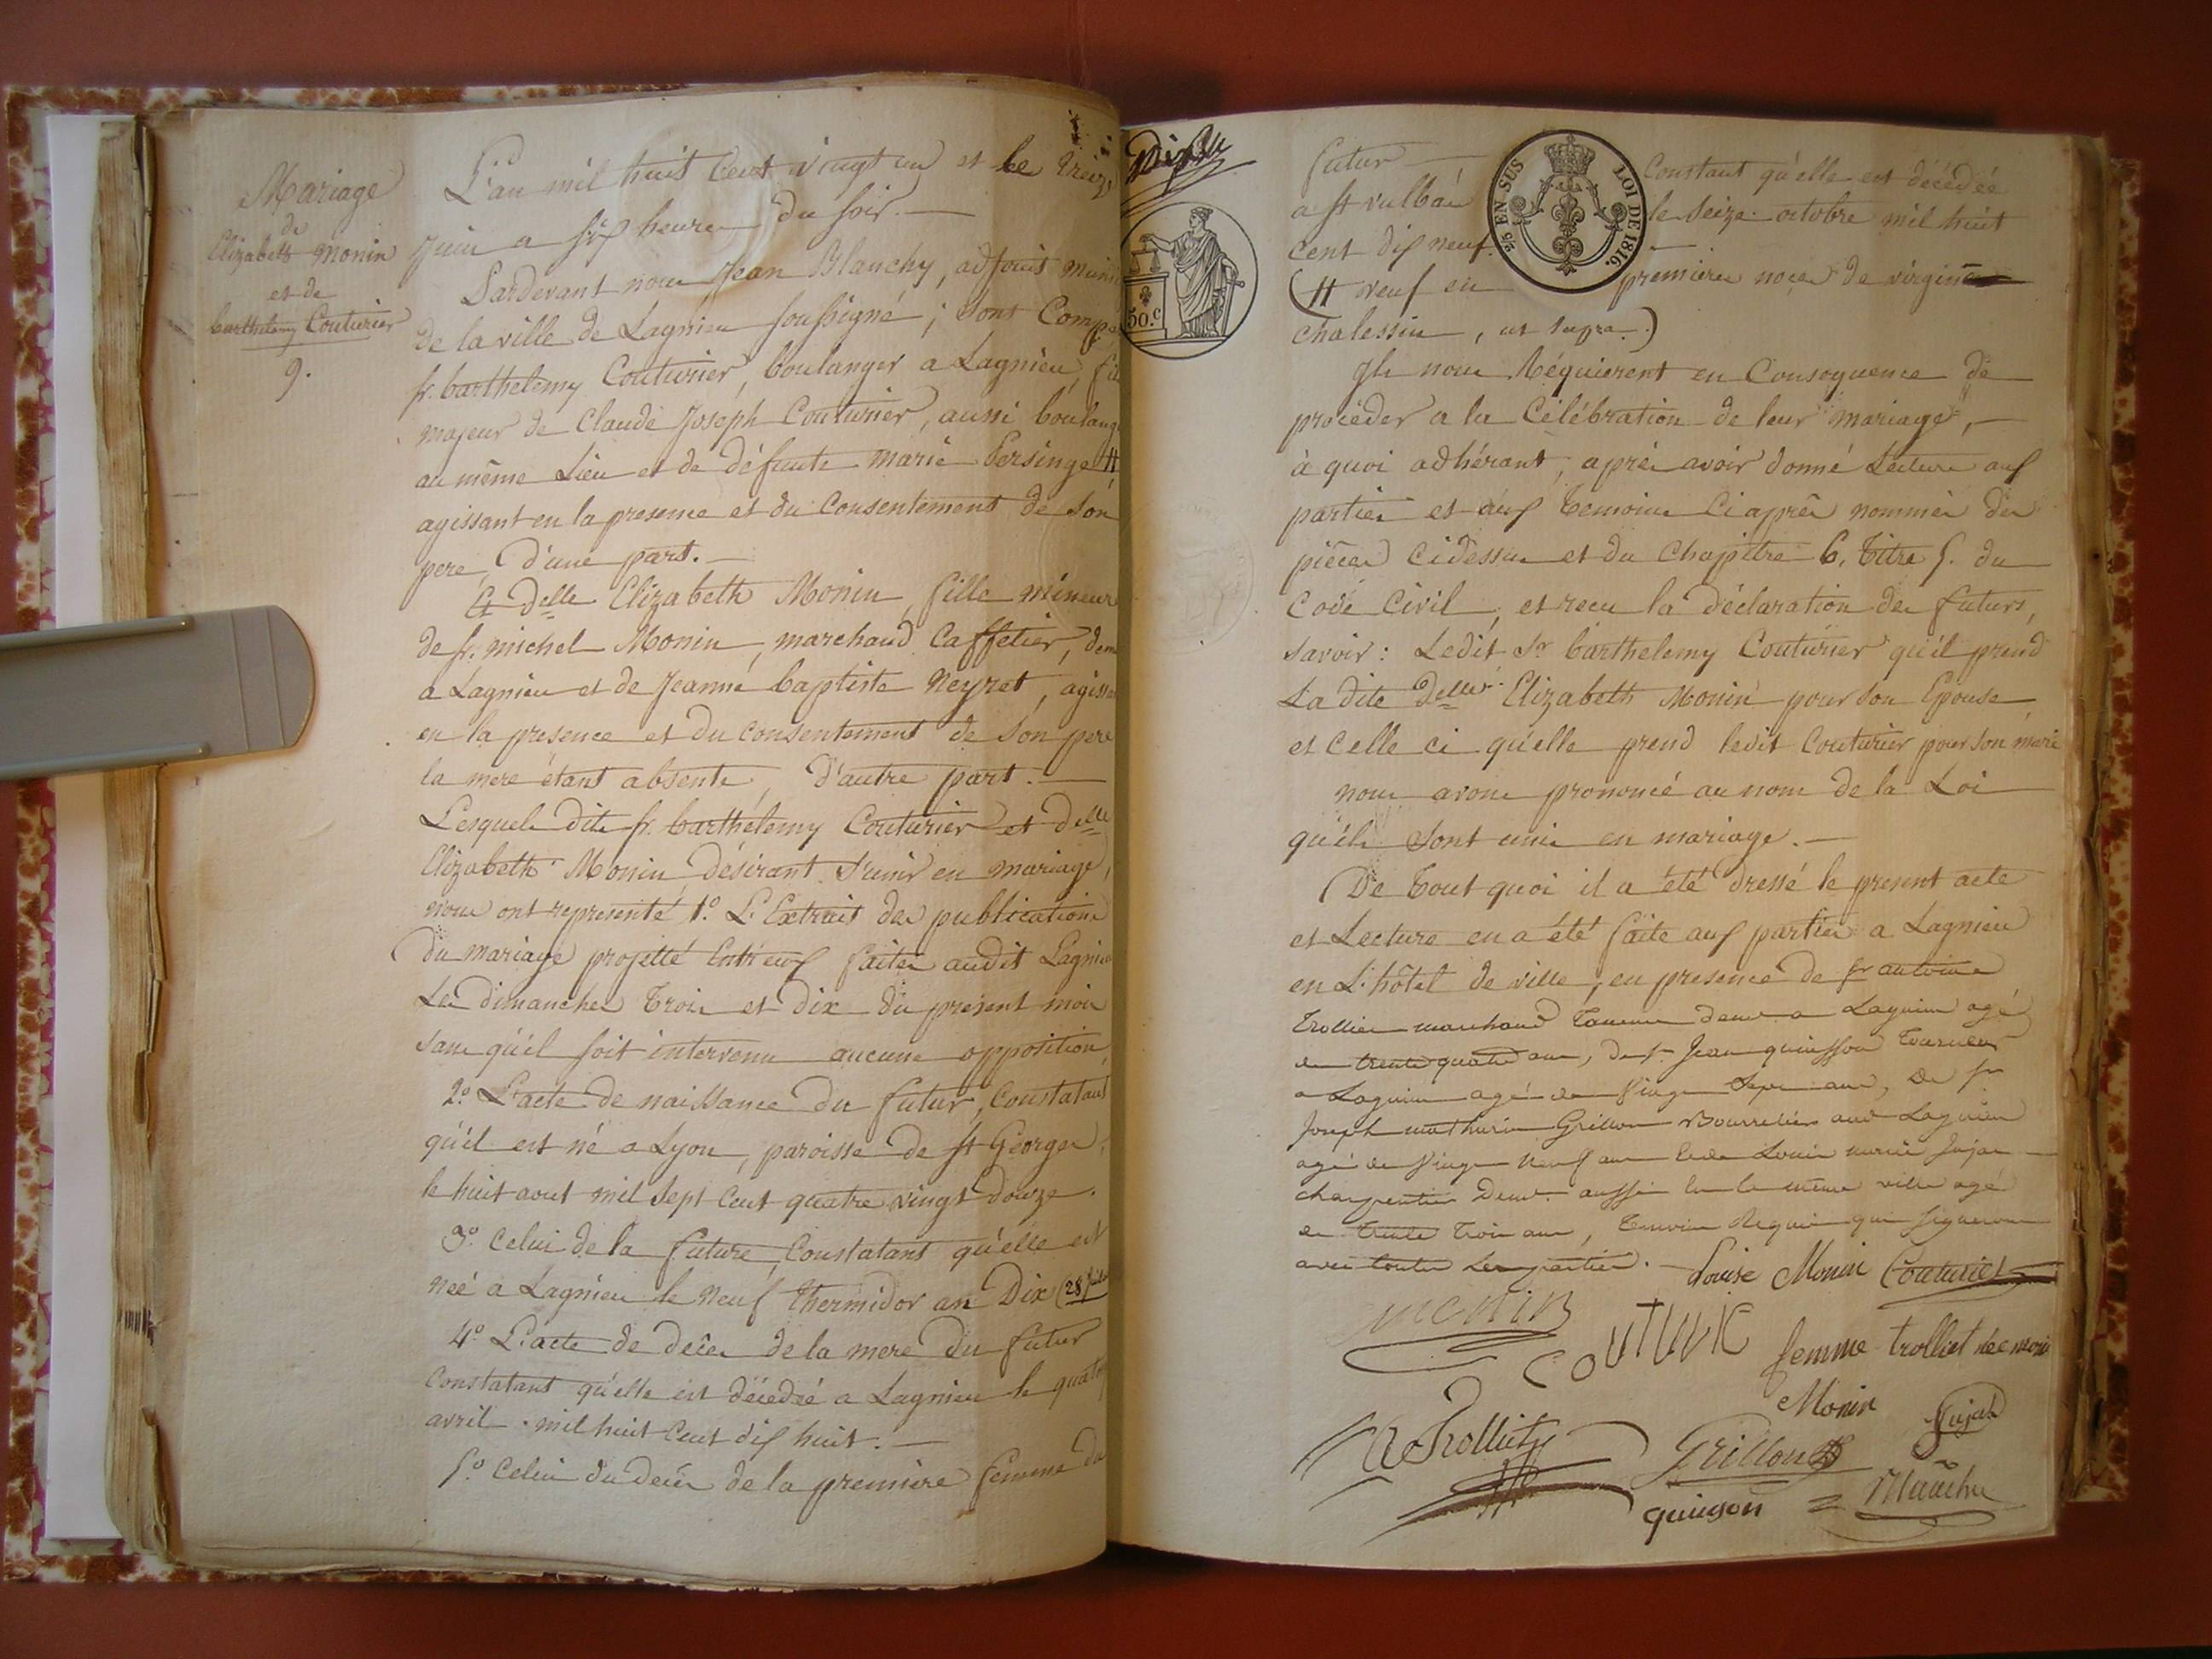 Mariage
de
Elizabeth Monin
et de
barthelemy Couturier
9.
L'an mil huit Cent vingt un et le treize
Juin a six heures du soir. —
Pardevant nous Jean Blanchy, adjoint
de la ville de Lagnieu soussigné ; sont
sr. barthelemy Couturier, boulanger a Lagnieu,
majeur de Claude Joseph Couturier, aussi
au même Lieu et de défunte marie Persinge #
agissant en la presence et du Consentement de son
pere, d'une part. —
Et Delle Elizabeth Monin, fille mineure
de sr. michel Monin, marchand Caffetier,
a Lagnieu et de Jeanne baptiste Neyret,
en la presence et du consentement de son pere
la mere étant absente, D'autre part. —
Lesquels dits sr. barthélemy Couturier et Delle
Elizabeth Monin désirant s'unir en mariage,
nous ont representé 1.º L'Extrait des publications
du mariage projetté Entr'eux faites audit Lagnieu
Les dimanches trois et dix du présent mois
sans qu'il soit intervenu aucune opposition,
2.º L'acte de naissance du futur, Constatant
qu'il est né a Lyon, paroisse de st Georges,
le huit aout mil sept Cent quatre vingt douze.
3.º Celui de la future, Constatant qu'elle est
née a Lagnieu le neuf thermidor an Dix (28
4.º L'acte de décès de la mere du futur
Constatant qu'elle est décédée a Lagnieu le
avril mil huit Cent dix huit. —
5.º Celui du décès de la premiere femme du
2/5 EN SUS
LOI DE 1816.
50.c
futur Constant qu'elle est décédée
a st vulbas le seize octobre mil huit
cent dix neuf. —
(# veuf en premieres noces de virginie
chalessin, ut supra.)
Ils nous Réquierent en Consequence de
procéder a la Célébration de leur mariage, —
à quoi adhérant, après avoir donné Lecture aux
parties et aux temoins Ci après nommés des
pièces cidessus et du Chapitre 6, titre 5. du
Code Civil, et recu la déclaration des futurs,
savoir : Ledit Sr barthelemy Couturier qu'il prend
La dite Delle Elizabeth Monin pour son Epouse,
et Celle ci qu'elle prend ledit Couturier pour son mari
nous avons prononcé au nom de la Loi
qu'ils sont unis en mariage. —
De tout quoi il a été dressé le present acte
et Lecture en a été faite aux parties a Lagnieu
en L'hôtel de ville, en presence de sr antoine
trollier marchand demt a Lagnieu agé
de trente quatre ans, de sr Jean quinsson tourneur
a Lagnieu agé de Vingt Sept ans, de sr
Joseph mathurin Grillon Bourrelier Lagnieu
agé de Vingt Neuf ans Louis marie Jujat
charpentier Demt aussi en la même ville agé
de trente trois ans, temoins Requis qui signeront
avec toutes Les parties. —
Louise Monin Couturier
monin
COUTURIE
femme trolliet née monin
Monin
Jujat
A Trolliet
Grillon
quinson
Blanchy